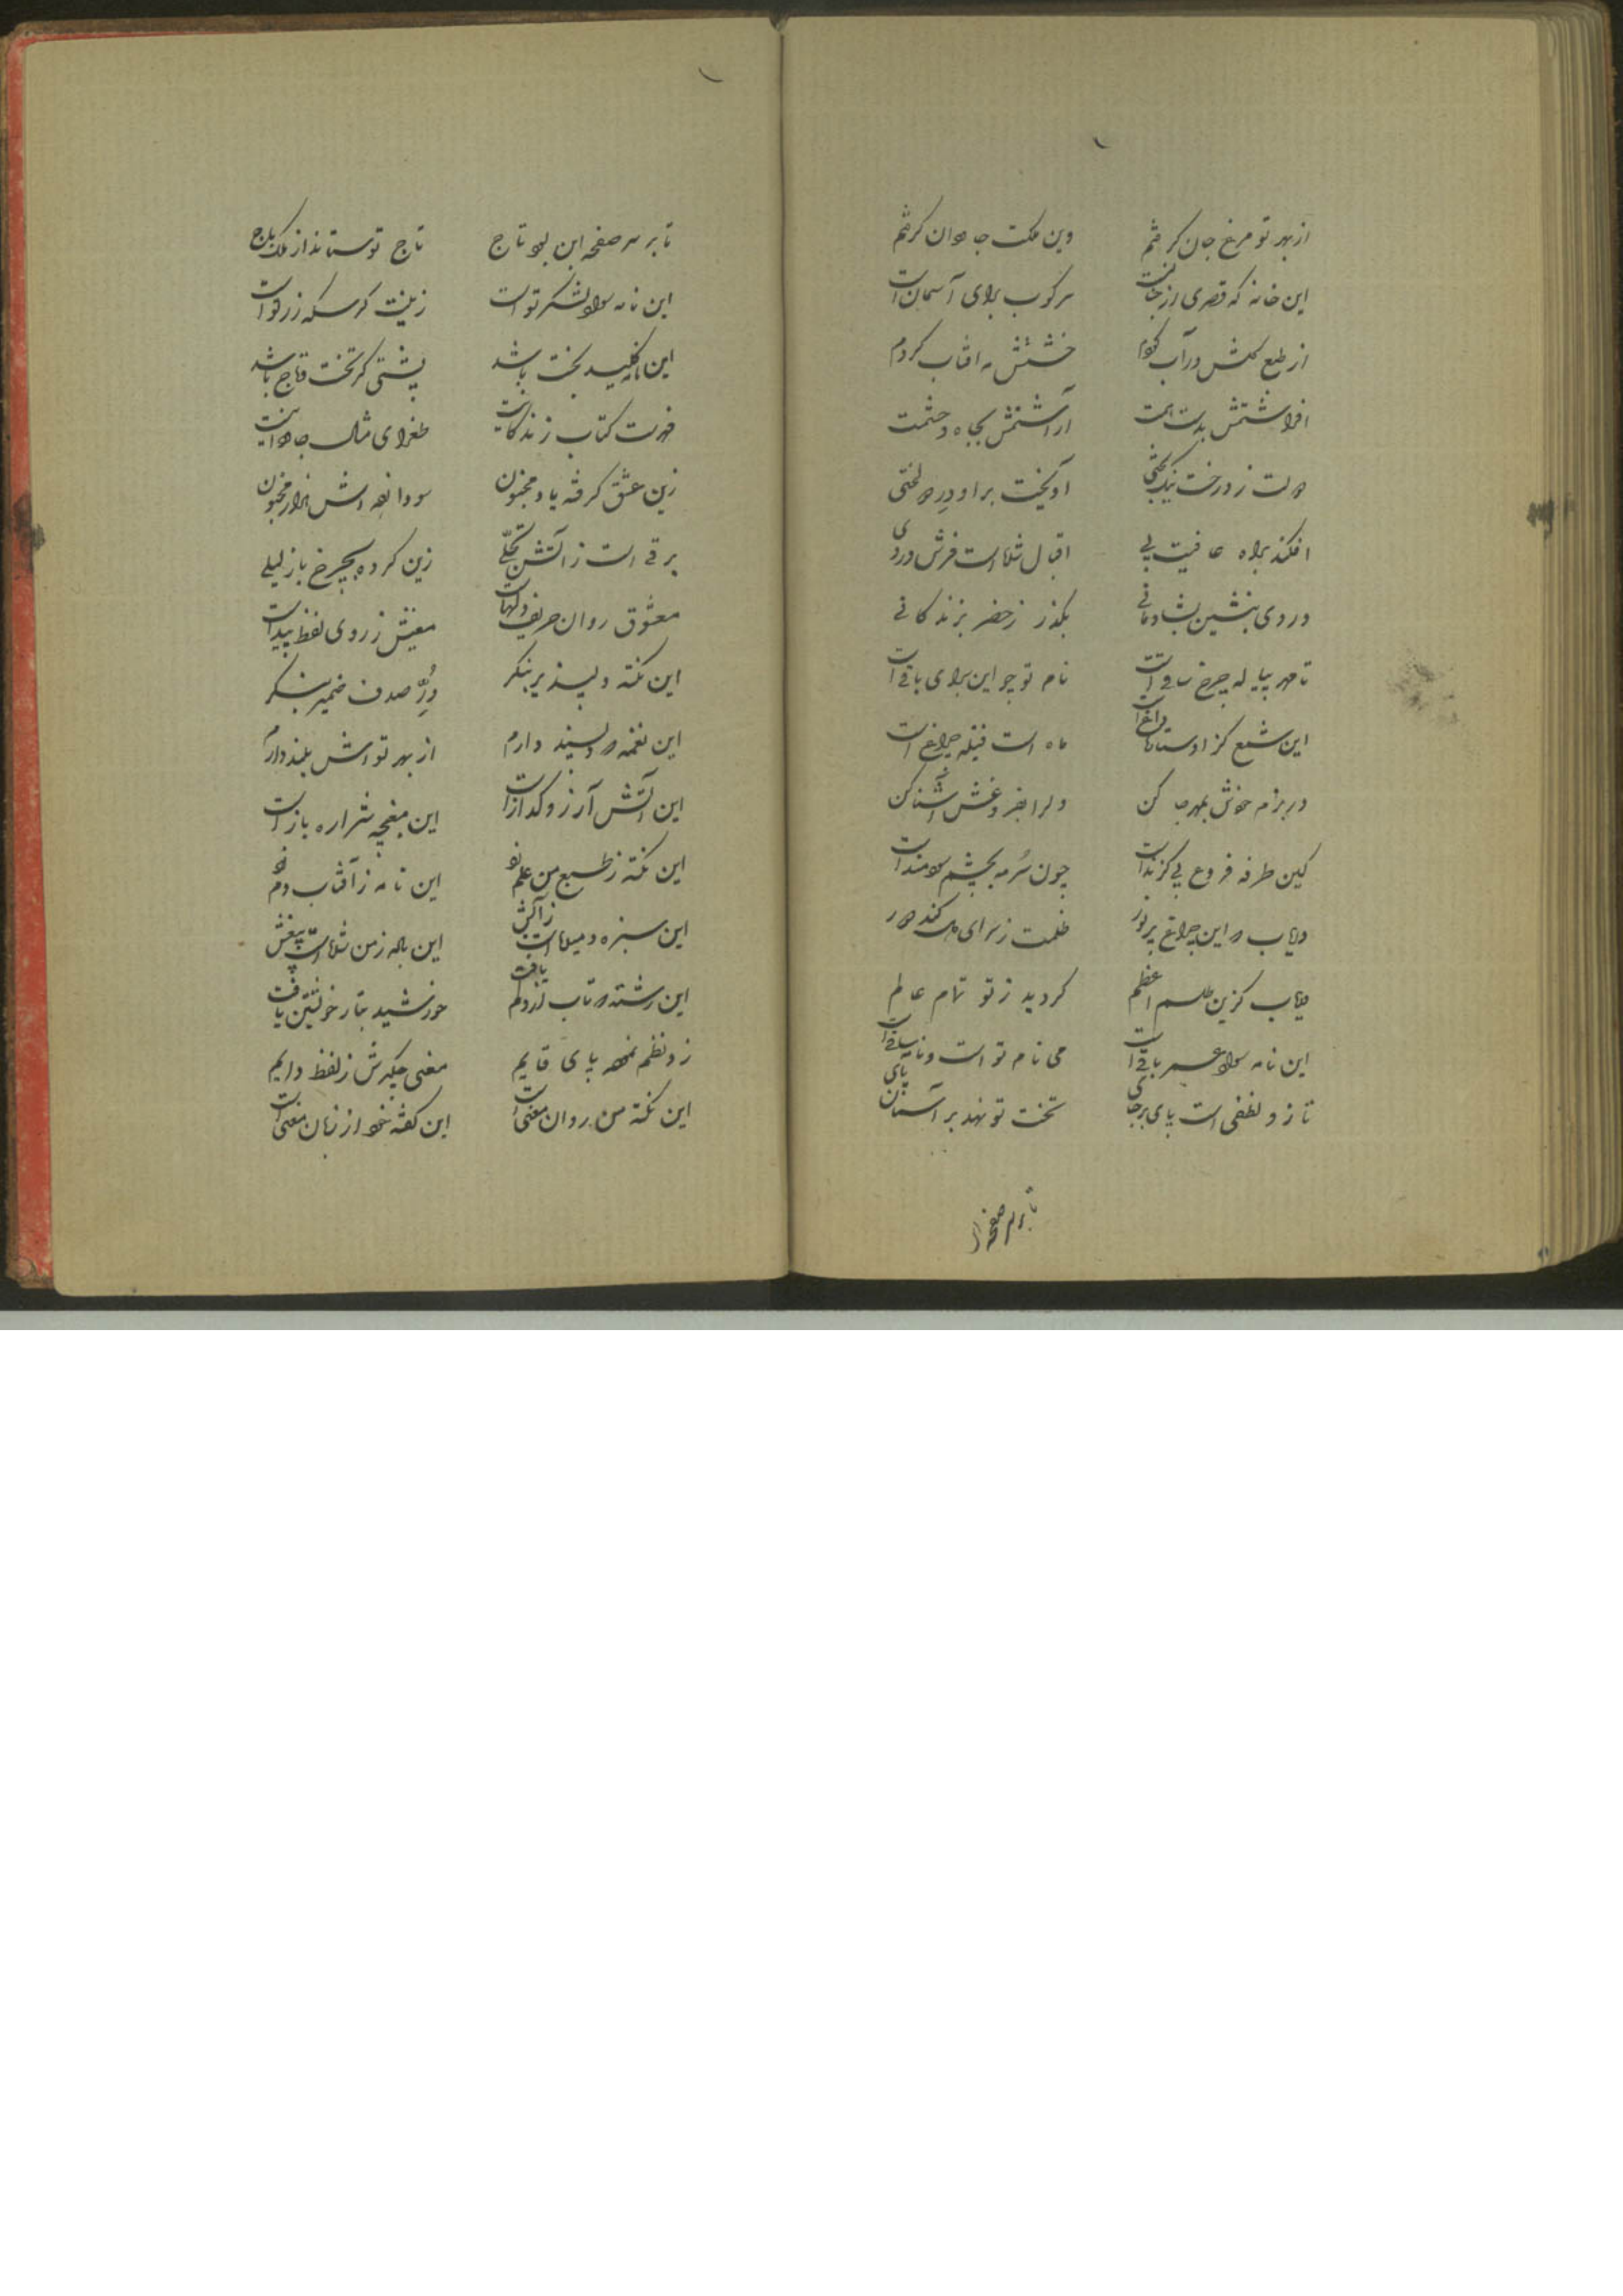 از بهر تو مرغ جان گرفتم وین ملک جاودان گرفتم
این خانه که قصری از جنانست سرکوب برای آسمان است
از طبع گلش در آب کردم خشتش مه آفتاب کردم
افراشتمش بدست همت آراستمش بجاه و حشمت
دولت ز درخت نیکبختی آویخت براو در
افکند براه عافیت پی اقبال فرش در وی
در وی بنشین بشادمانی بگذر ز خضر بزندگانی
تا مهر پیاله چرخ ساقی است نام تو چو این برای باقی است
این شمع کز او ماه است فتیله چراغ است
در بزم خودش بمهر جا کن دل را بفروغش آشنا کن
کین طرفه فروغ بی گزند است چون سرمه بچشم سودمند است
دریاب که این چراغ پر نور ظلمت ز سرای دل کند دور
دریاب کزین طلسم اعظم گردید ز تو تمام عالم
این نامه سواد عمر باقی است می نام تو است و نامه ساقی است
تا زو لفظی است پای برجای تخت تو نهد بر آسمان پای
تا بر سر صفحه
تا بر سر صفحه این بود تاج تاج تو ستاند از ملک باج
این نامه سواد لشکر تو است زینت گر سکه زر تو است
این نامه کلید بخت باشد پشتی گر تخت و تاج باشد
فهرست کتاب زندگانیست طغرای مثال جاودانیست
زین عشق گرفته یاد مجنون سودا زده اش هزار مجنون
برقی است ز آتش تجلی زین کرده بچرخ باز لیلی
معشوق روان حریف دلهاست معنیش ز روی لفظ پیداست
این نکته دلپذیر بنگر در صدف ضمیر بنگر
این نغمه که دلپسند دارم از بهر تواش بلند دارم
این آتش آرزو گداز است این مغبچه شراره باز است
این نکته ز طبع من علم شد این نامه ز آفتاب
این سبزه دمیده است ز آتش این باله ز من
این رشته که تاب از دلم یافت خورشید بتار خویشتن یافت
زو نظم نموده پای قایم معنی جگرش ز لفظ دایم
این نکته من روان معنی است این گفته خود از زبان معنی است